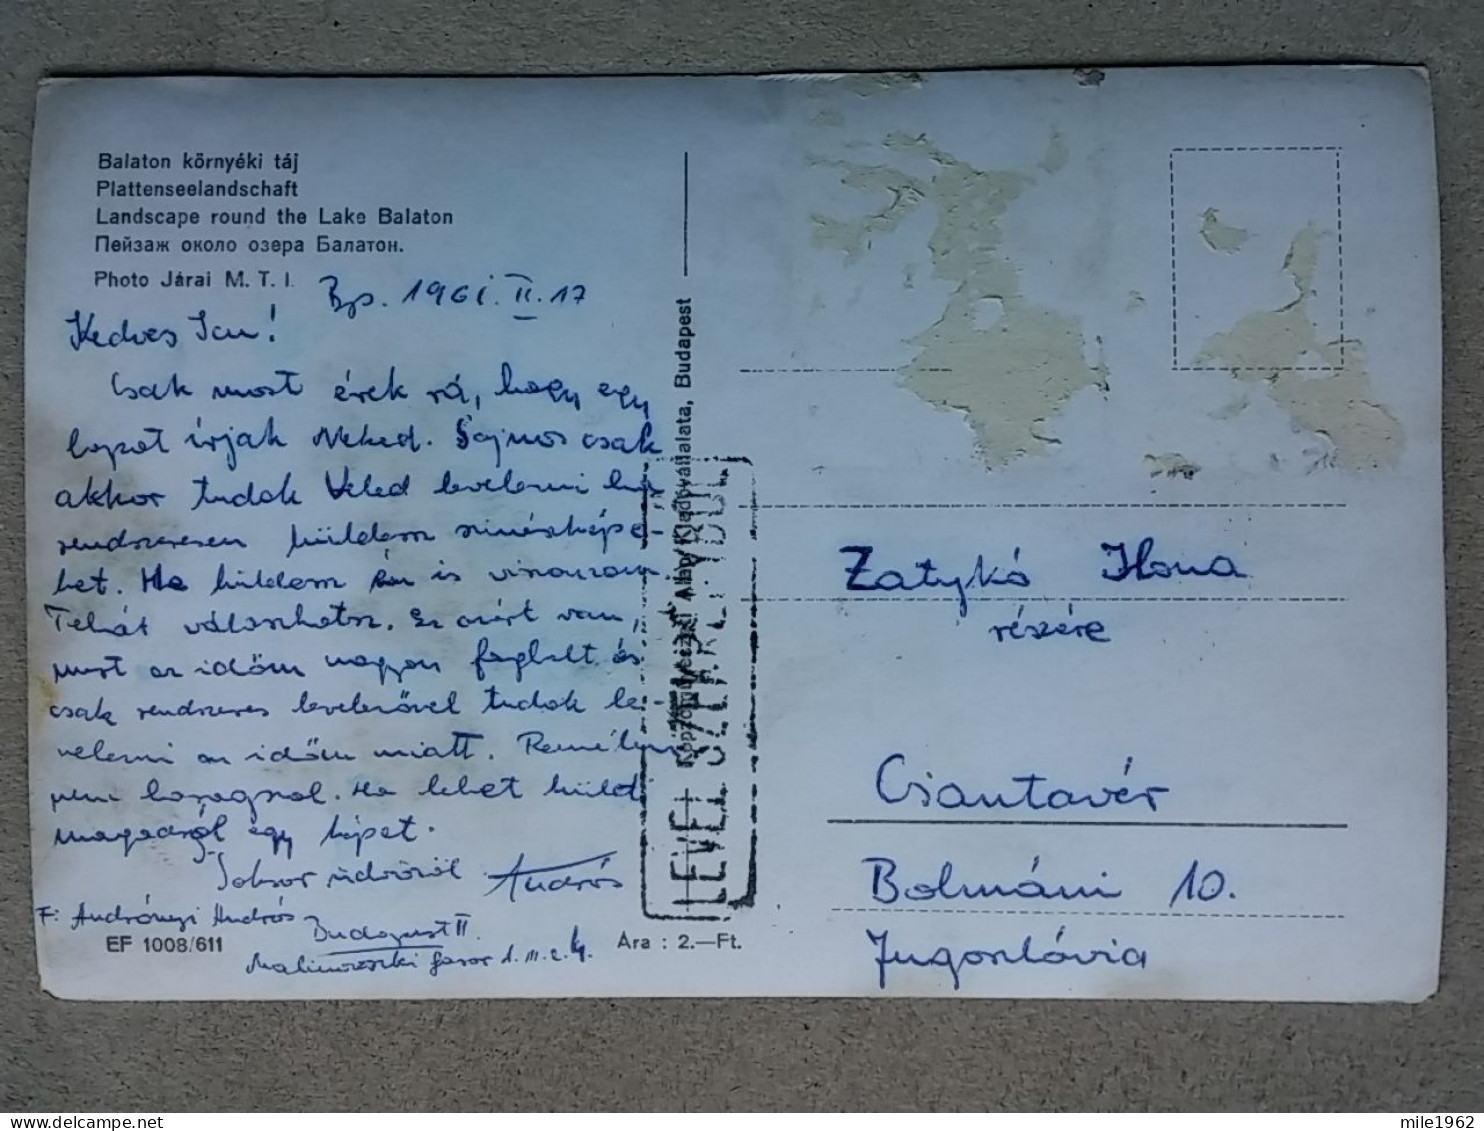 Balaton környéki táj
Plattenseelandschaft
Landscape round the Lake Balaton
Пейзаж около озера Балатон.
Photo Járai M. T. I.
Bp. 1961. II. 17
Kedves Icu!
Csak most érek rá, hogy egy
lapot írjak Neked. Sajnos csak
akkor tudok Veled levelezni ha
rendszeresen küldesz színészképe-
ket. Ha küldesz én is viszonzom
Tehát válaszhatsz. Ez azért van,
mert az időm nagyon foglalt és
csak rendszeres levelezővel tudok le-
velezni az időm miatt. Remélem
nem haragszol. Ha lehet küldj
magadról egy képet.
Sokszor üdvözöl András
F: Andrónyi András
Budapest II.
fasor
EF 1008/611
Ára : 2.—Ft.
Képzőművészeti Alap Kiadóvállalata, Budapest
LEVÉL SZEKRÉNYBŐL
Zatykó Ilona
részére
Csantavér
Bolmáni 10.
Jugoszlávia
mile1962